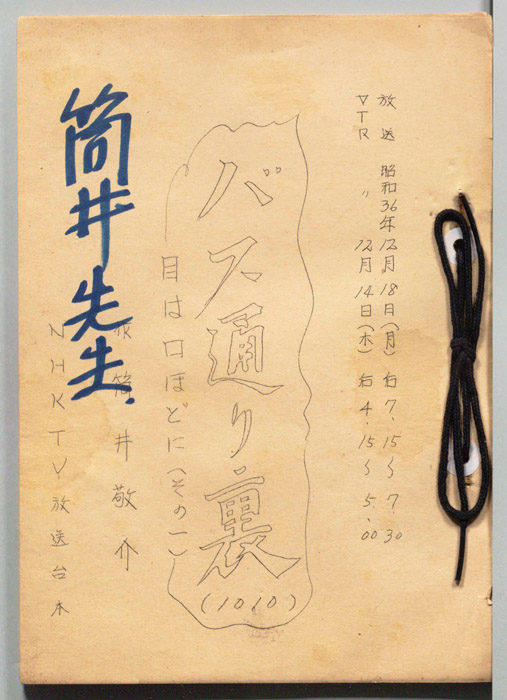 放送 昭和36年12月18日(月) 右 7.15〜7.30
VTR 〃 12月14日(木) 右 4.15〜5.00
バス通り裏
(1010)
目は口ほどに(その一)
筒井敬介
NHKTV放送台本
筒井先生